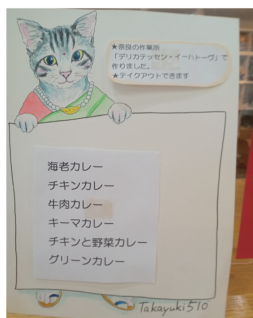 ★奈良の作業所
「デリカテッセン・イーハトーヴ」で
作りました。
★テイクアウトできます
海老カレー
チキンカレー
牛肉カレー
キーマカレー
チキンと野菜カレー
グリーンカレー
Takayuki510